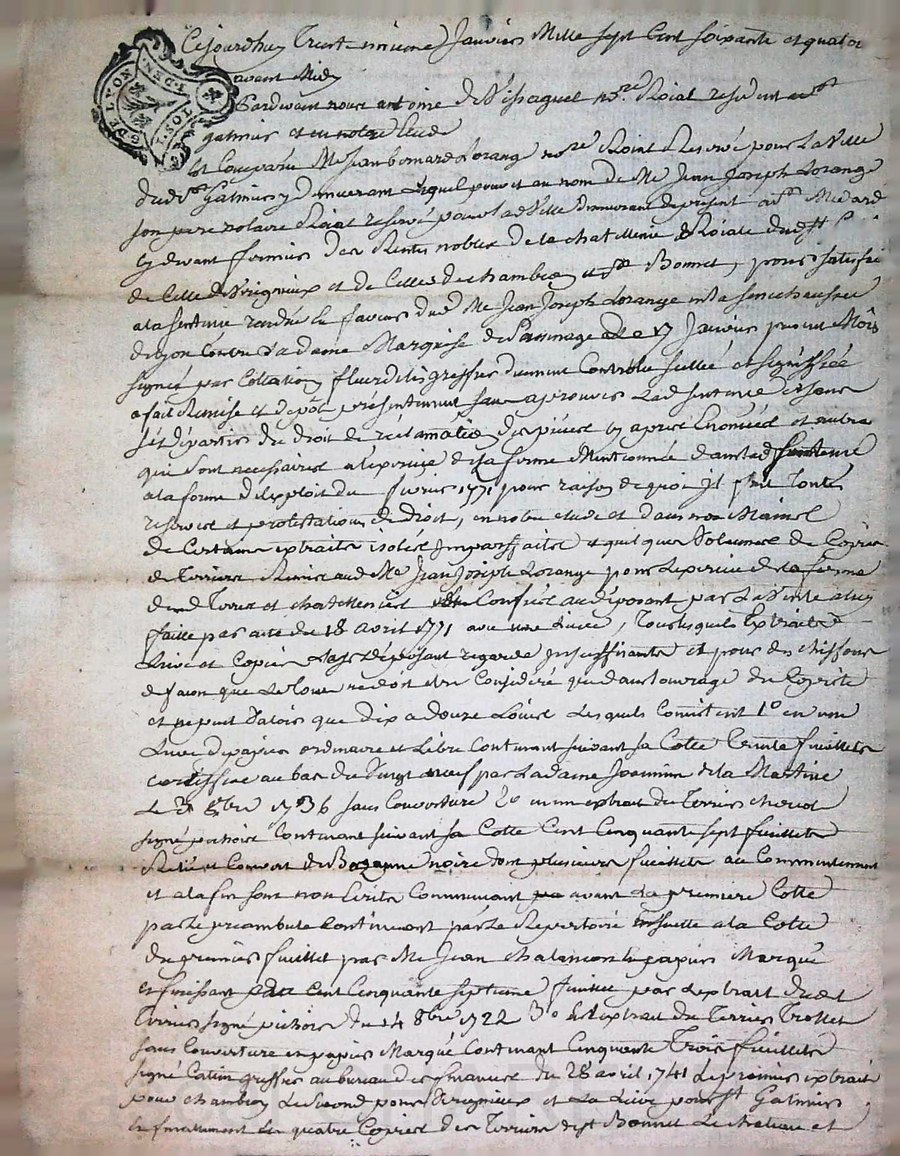 G. DE LYON
I. SOL
DEN.
Cejourdhuy Trent unieme Janvier Mille sept Cent soixante et quator
avant Midy
Pardevant nous antoine De Vissaguel no.re Roial resident a st
galmier et en notre Etude
Est Comparu Me Jean bernard Lorange no.re Roial Reservé pour La Ville
dud. st Galmier y demeurant Lequel pour et au nom de Me Jean Joseph Lorange
son pere notaire Roial reservé pour lad Ville demeurant de present a st Medard
cy devant fermier des Rentes nobles de la chatellenie Roiale dud st
de Celle de Virignieux et de Celles de chambeon et st Bonnet, pour satisfai
a la sentence rendue en faveur dud Me Jean Joseph Lorange en la senechaussée
de lyon Contre La dame Marquise de Sassenage le 17 Janvier present Mois
signée par Collation fleurdelis greffier duement Controllée scellée et signiffiée
a fait Remise et depôt presentement sans aprouver Lad sentence et sans
se departir du droit de reclamation des pieces cy apres Enoncées et autres
qui sont necessaires a l'exercice de la ferme Mentionnée dans lad sentence
a la forme de l'exploit du fevrier 1771 pour raison de quoi il fait Toutes
reserves et protestations de droit, en notre etude et dans nos Mains
de Certains extraits isolés imparfaits et quelques Volumes de Copies
de Terriers Remis aud Me Jean Joseph Lorange pour L'exercice de la ferme
desd Terres et chatellenies Confiés au deposant par La Vente a luy
faitte par acte du 18 avril 1771 avec une Lieve, Tous lesquels Extraits
Lieve et Copies Le deposant regarde insuffisants et pour des chiffons
de facon que Le Tout ne doit etre Consideré que dans l'ouvrage du Copiste
et ne peut Valoir que dix a douze Loüis Lesquels Consistent 1o en une
Lieve de papier ordinaire et Libre Contenant suivant sa Cotte Trente feuillets
certiffiée au bas du Vingt neuf par La dame Jeannin de la Martine
Le 8bre 1736 sans Couverture 2o en un extrait du Terrier
signé pichoir Contenant suivant sa Cotte Cent Cinquante sept feuillets
Relié et Couvert de Bazanne noire dont plusieurs feuillets au Commencement
et a la fin sont non Ecrits Commencant avant La premiere Cotte
par Le preambule Continuant par Le Repertoire ensuitte a la Cotte
du premier feuillet par Me Jean chalancon en papier Marqué
et finissant Cent Cinquante septieme feuillet par L'extrait dudt
Terrier signé pichoir du 14 8bre 1722 3o L'extrait du Terrier Trottet
sans Couverture en papier Marqué Contenant Cinquante Trois feuillets
signé Catin greffier au bureau des finances du 28 avril 1741 Le premier extrait
pour chambeon Le second pour Virignieux et La Lieve pour st Galmier
et finallement En quatre Copies des Terriers de st Bonnet Le chateau et